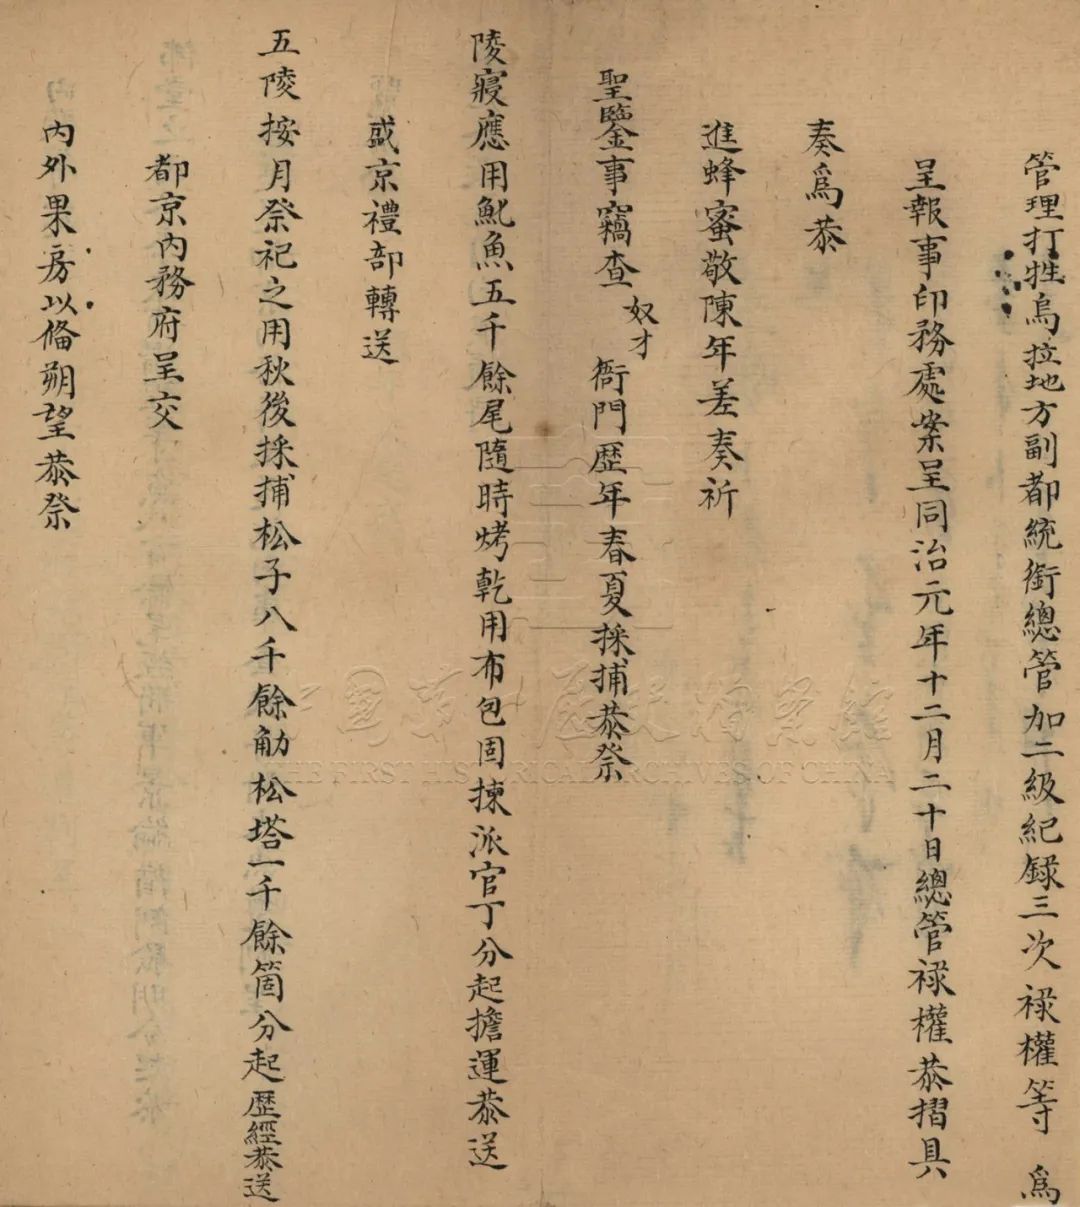 管理打牲烏拉地方副都統銜總管加二級紀錄三次祿權等 爲
呈報事印務處案呈同治元年十二月二十日總管祿權恭摺具
奏爲恭
進蜂蜜敬陳年差奏祈
聖鑒事竊查奴才衙門歷年春夏採捕恭祭
陵寢應用魫魚五千餘尾隨時烤乾用布包固揀派官丁分起擔運恭送
盛京禮部轉送
五陵按月祭祀之用秋後採捕松子八千餘觔松塔一千餘箇分起歷經恭送
都京內務府呈交
內外果房以俻朔望恭祭
中國第一歷史檔案館
THE FIRST HISTORICAL ARCHIVES OF CHINA